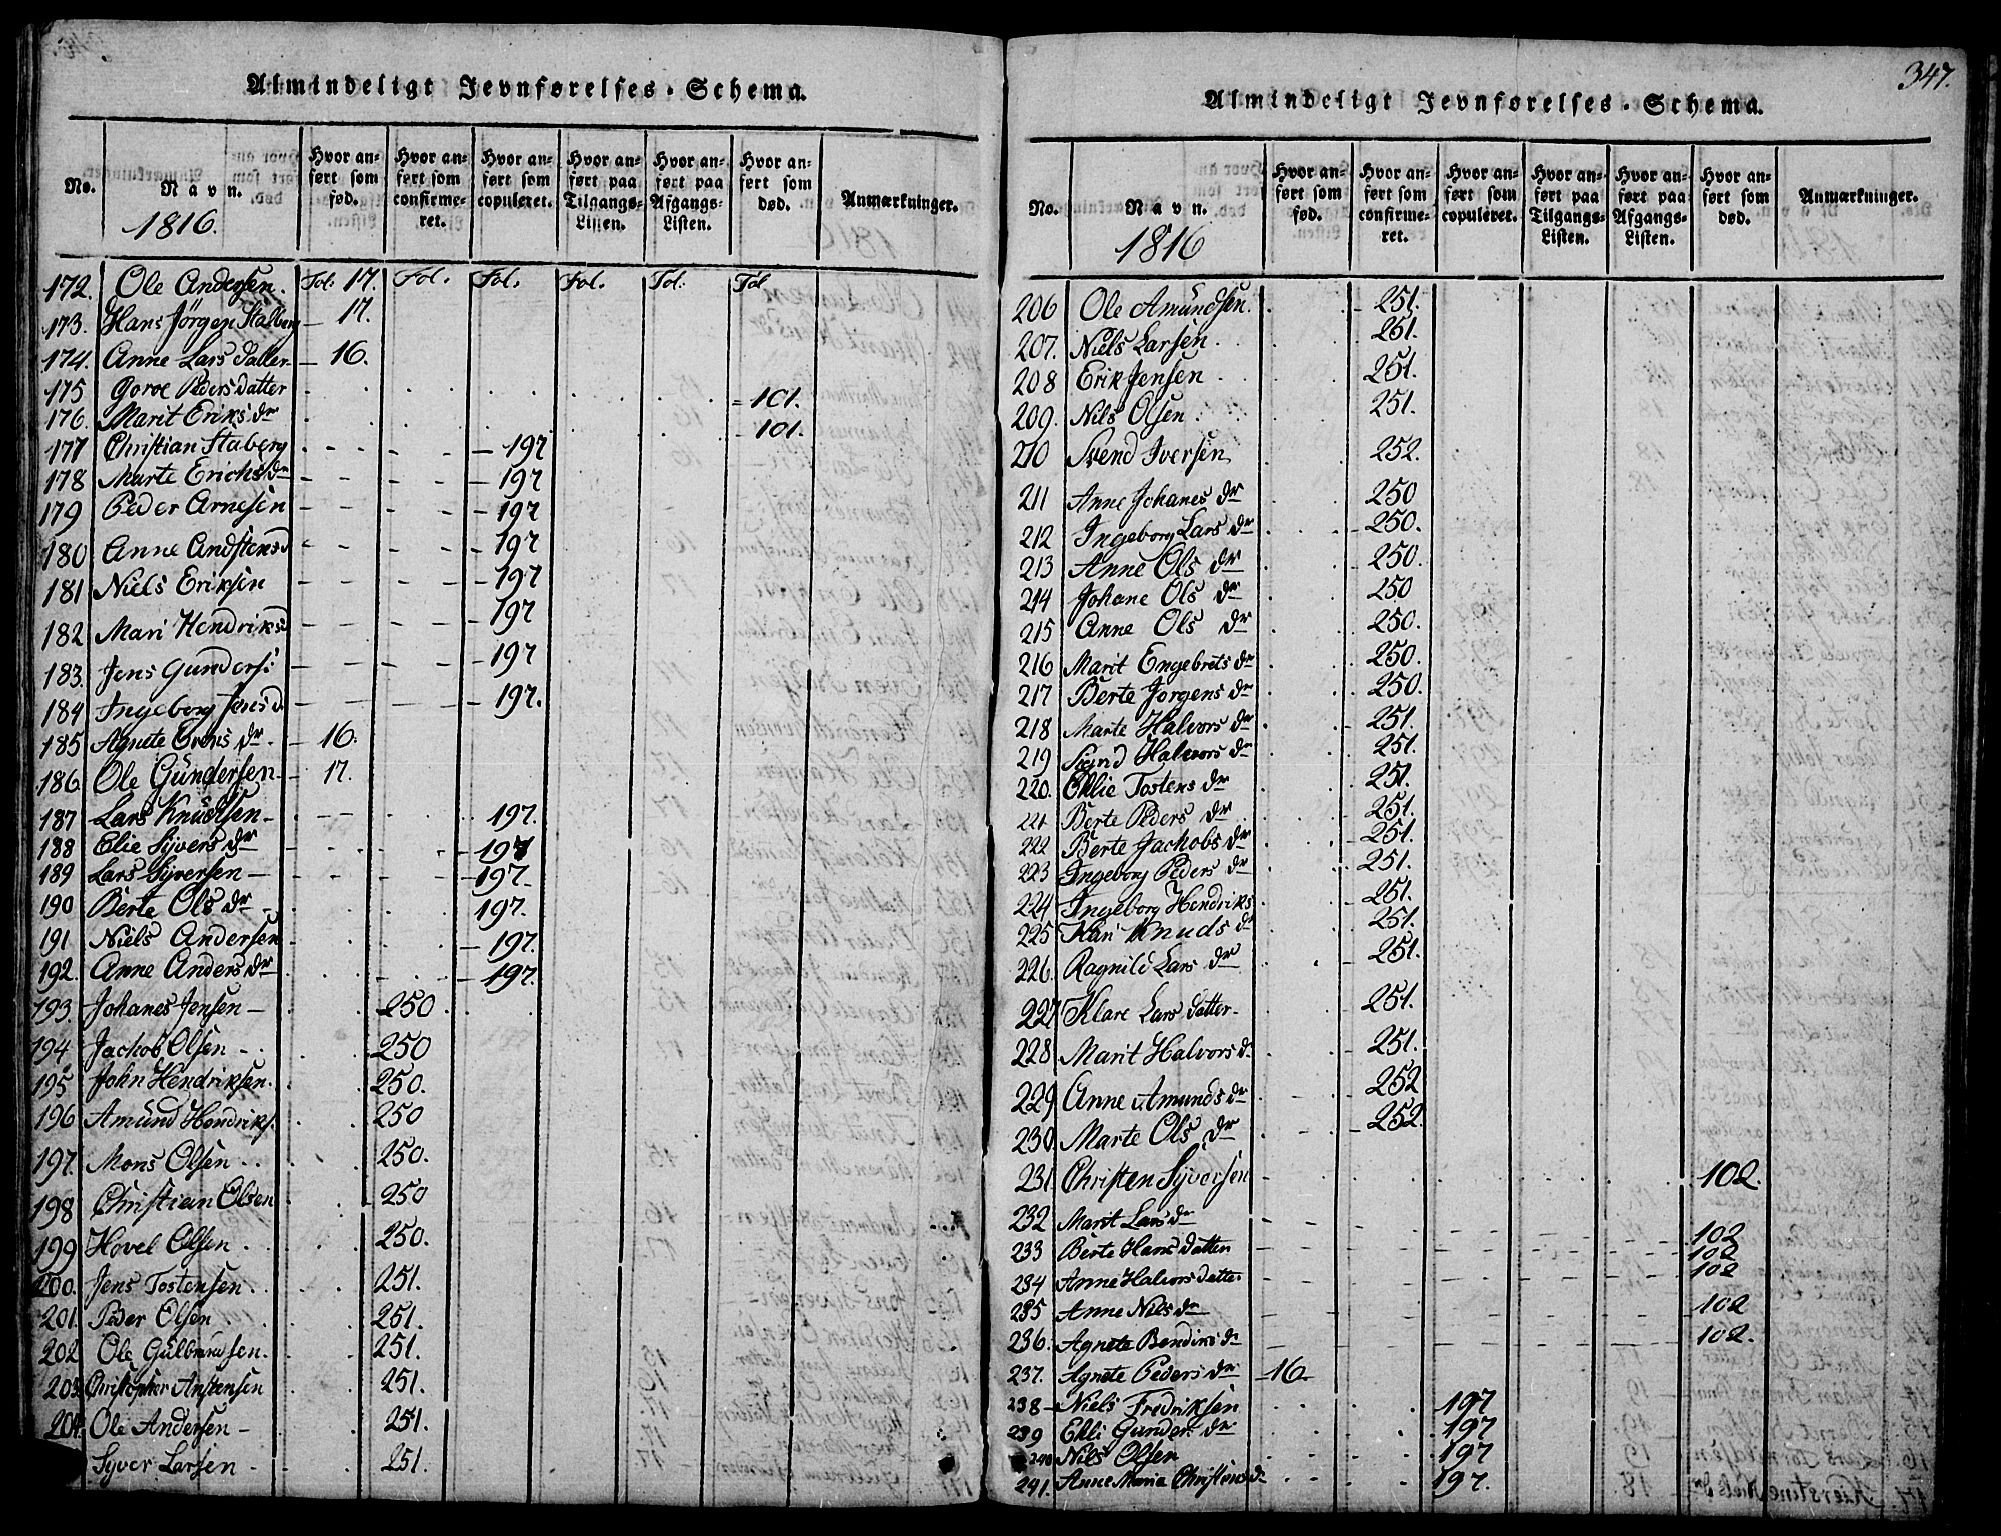 Almindeligt Jevnførelses-Schema.
No. Navn. Hvor anført som fød. Hvor anført som confirmeret. Hvor anført som copuleret. Hvor anført paa Tilgangs-Listen. Hvor anført paa Afgangs-Listen. Hvor anført som død. Anmærkninger.
1816.
172. Ole Andersen. Fol: 17. Fol. Fol. Fol. Fol. Fol
173. Hans Jörgen Stalberg 17.
174. Anne Lars datter 16.
175 Goroe Peders datter 101.
176. Marit Eriks dr 101.
177 Christian Staberg 197
178 Marte Erichs dr 197
179 Peder Arnesen 197
180 Anne Andstens d 197
181 Niels Eriksen 197
182 Mari Hendriks d 197
183. Jens Gunders: 197
184 Ingeborg Jens d. 197.
185 Agnete Evens dr. 16.
186. Ole Gündersen 17.
187 Lars Knudtsen 197.
188 Elie Syvers dr 197
189 Lars Syversen 197.
190 Berte Ols dr 197.
191 Niels Andersen 197.
192. Anne Anders dr 197.
193. Johanes Jensen 250
194 Jachob Olsen 250
195 John Hendriksen. 250.
196 Amünd Hendriks. 250
197. Mons Olsen 250.
198 Christian Olsen 250
199 Hovel Olsen 250.
200. Jens Tostensen 251.
201. Peder Olsen 251.
202 Ole Gulbrandsen. 251.
203. Christopher Anstensen 251.
204. Ole Andersen 251.
Syver Larsen 251.
347.
Almindeligt Jevnførelses-Schema.
No. Navn. Hvor anført som fød. Hvor anført som confirmeret. Hvor anført som copuleret. Hvor anført paa Tilgangs-Listen. Hvor anført paa Afgangs-Listen. Hvor anført som død. Anmærkninger.
1816
206 Ole Amündsen. 251.
207. Niels Larsen. 251.
208 Erik Jensen 251.
209. Nils Olsen 251.
210 Svend Iversen 252.
211 Anne Johanes dr 250
212 Ingeborg Lars dr 250.
213 Anne Ols dr 250.
214 Johane Ols dr 250
215 Anne Ols dr 250.
216 Marit Engebrets dr 250.
217 Berte Jorgens dr 250.
218 Marte Halvors dr 251.
219 Sigrid Halvors dr 251.
220. Ehlie Tostens dr 251.
221 Berte Peders dr 251.
222 Berte Jachobs dr 251.
223 Ingeborg Peders dr 251.
224 Ingeborg Hendriks 251.
225 Kari Knuds dr 251.
226. Ragnild Lars dr 251.
227 Klare Lars datter 251.
228 Marit Halvors d. 251.
229 Anne Amunds dr 252
230. Marte Ols dr 252.
231. Christen Syversen 102.
232 Marit Lars dr 102
233 Berte Hans datter 102
234 Anne Halvors datter 102
235 Anne Nils dr 102
236. Agnete Bendiks dr 102.
237. Agnete Peders dr 16
238 Niels Fredriksen 197
239 Ehli Gunders dr 197
240 Nils Olsen 197
241. Anne Maria Christens d 197.